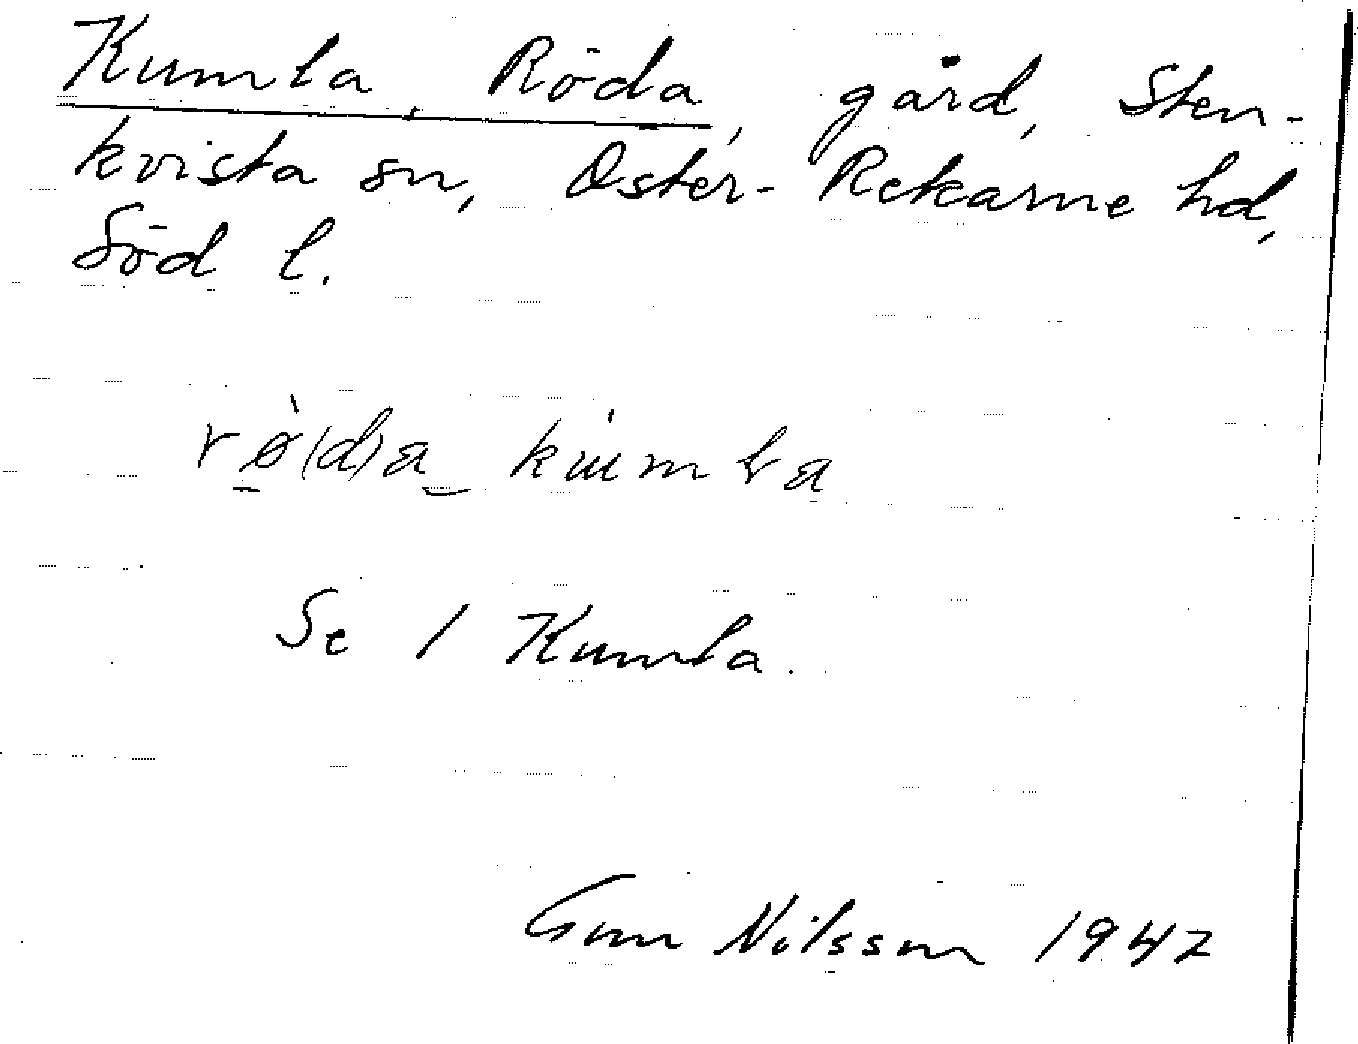 Kumla, Röda, gård, Sten-
kvista sn, Öster-Rekarne hd,
Söd l.
rø̀(d)a kúmla
Se 1 Kumla.
Gun Nilsson 1947